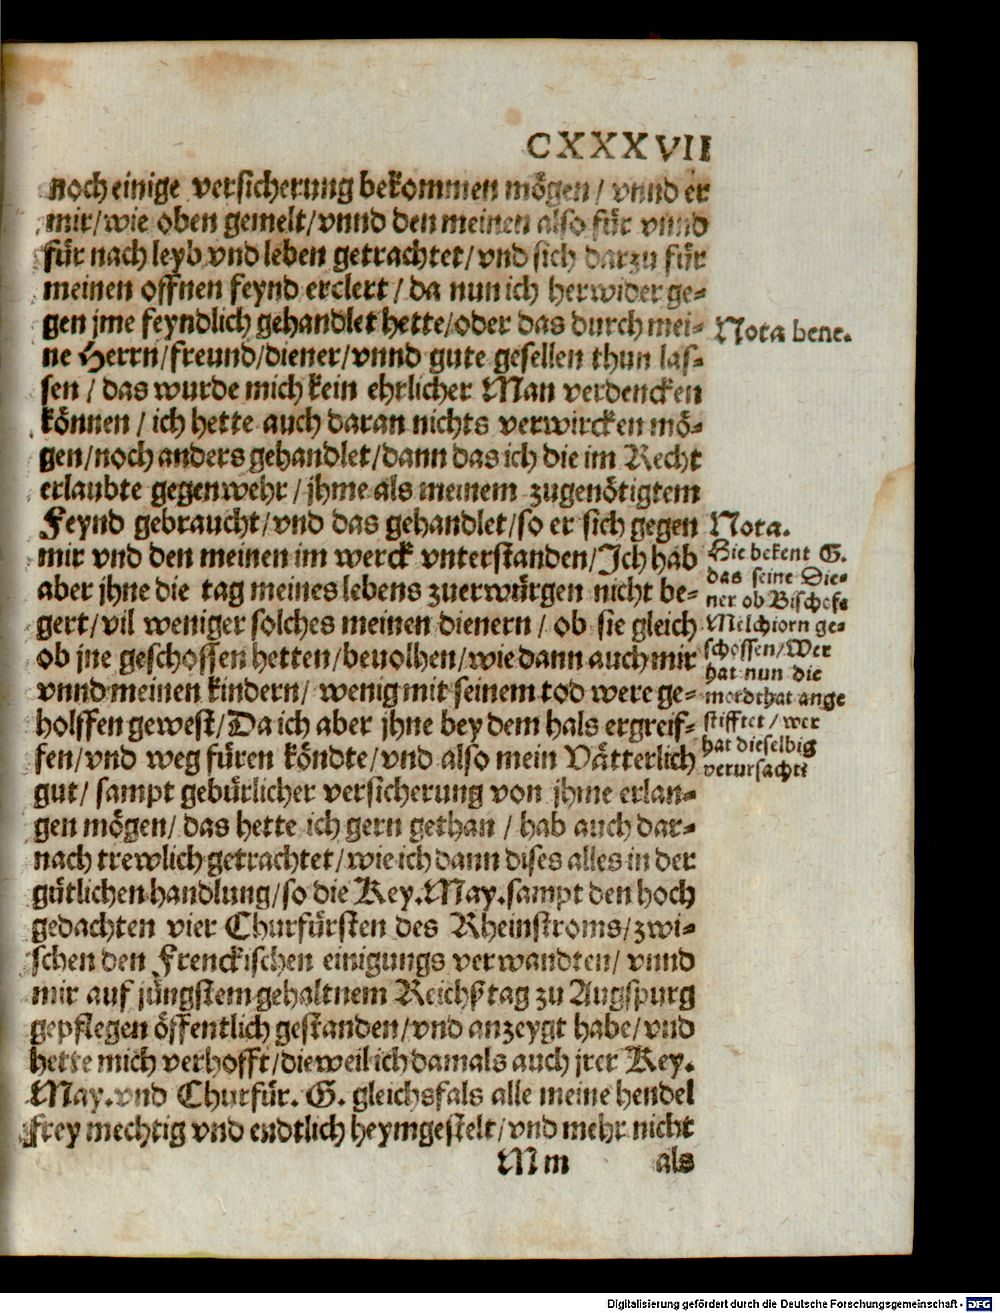 CXXXVII
noch einige versicherung bekommen mögen / vnnd er
mir/wie oben gemelt/vnnd den meinen also für vnnd
für nach leyb vnd leben getrachtet/vnd sich darzu für
meinen offnen feynd erclert / da nun ich herwider ge-
gen jme feyndlich gehandlet hette/oder das durch mei-
ne Herrn/freund/diener/vnnd gute gesellen thun las-
sen / das wurde mich kein ehrlicher Man verdencken
können / ich hette auch daran nichts verwircken mö-
gen/noch anders gehandlet/dann das ich die im Recht
erlaubte gegenwehr / jhme als meinem zugenötigtem
Feynd gebraucht/vnd das gehandlet/so er sich gegen
mir vnd den meinen im werck vnterstanden/Ich hab
aber jhne die tag meines lebens zuerwürgen nicht be-
gert/vil weniger solches meinen dienern / ob sie gleich
ob jne geschossen hetten/beuolhen/wie dann auch mir
vnnd meinen kindern/ wenig mit seinem tod were ge-
holffen gewest/Da ich aber jhne bey dem hals ergreif-
fen/vnd weg füren köndte/vnd also mein Vätterlich
gut/ sampt gebürlicher versicherung von jhme erlan-
gen mögen/ das hette ich gern gethan / hab auch dar-
nach trewlich getrachtet/wie ich dann dises alles in der
gütlichen handlung/so die Key.May.sampt den hoch
gedachten vier Churfürsten des Rheinstroms/zwi-
schen den Frenckischen einigungs verwandten/ vnnd
mir auf jüngstem gehaltnem Reichßtag zu Augspurg
gepflegen öffentlich gestanden/vnd anzeygt habe/vnd
hette mich verhofft/dieweil ich damals auch jrer Key.
May.vnd Churfür. G. gleichsfals alle meine hendel
frey mechtig vnd endtlich heymgestelt/vnd mehr nicht
Mm als
Nota bene.
Nota.
Hie bekent G.
das seine Die-
ner ob Bischofs
Melchiorn ge-
schossen/Wer
hat nun die
mordthat ange
stifftet / wer
hat dieselbig
verursacht
Digitalisierung gefördert durch die Deutsche Forschungsgemeinschaft - DFG